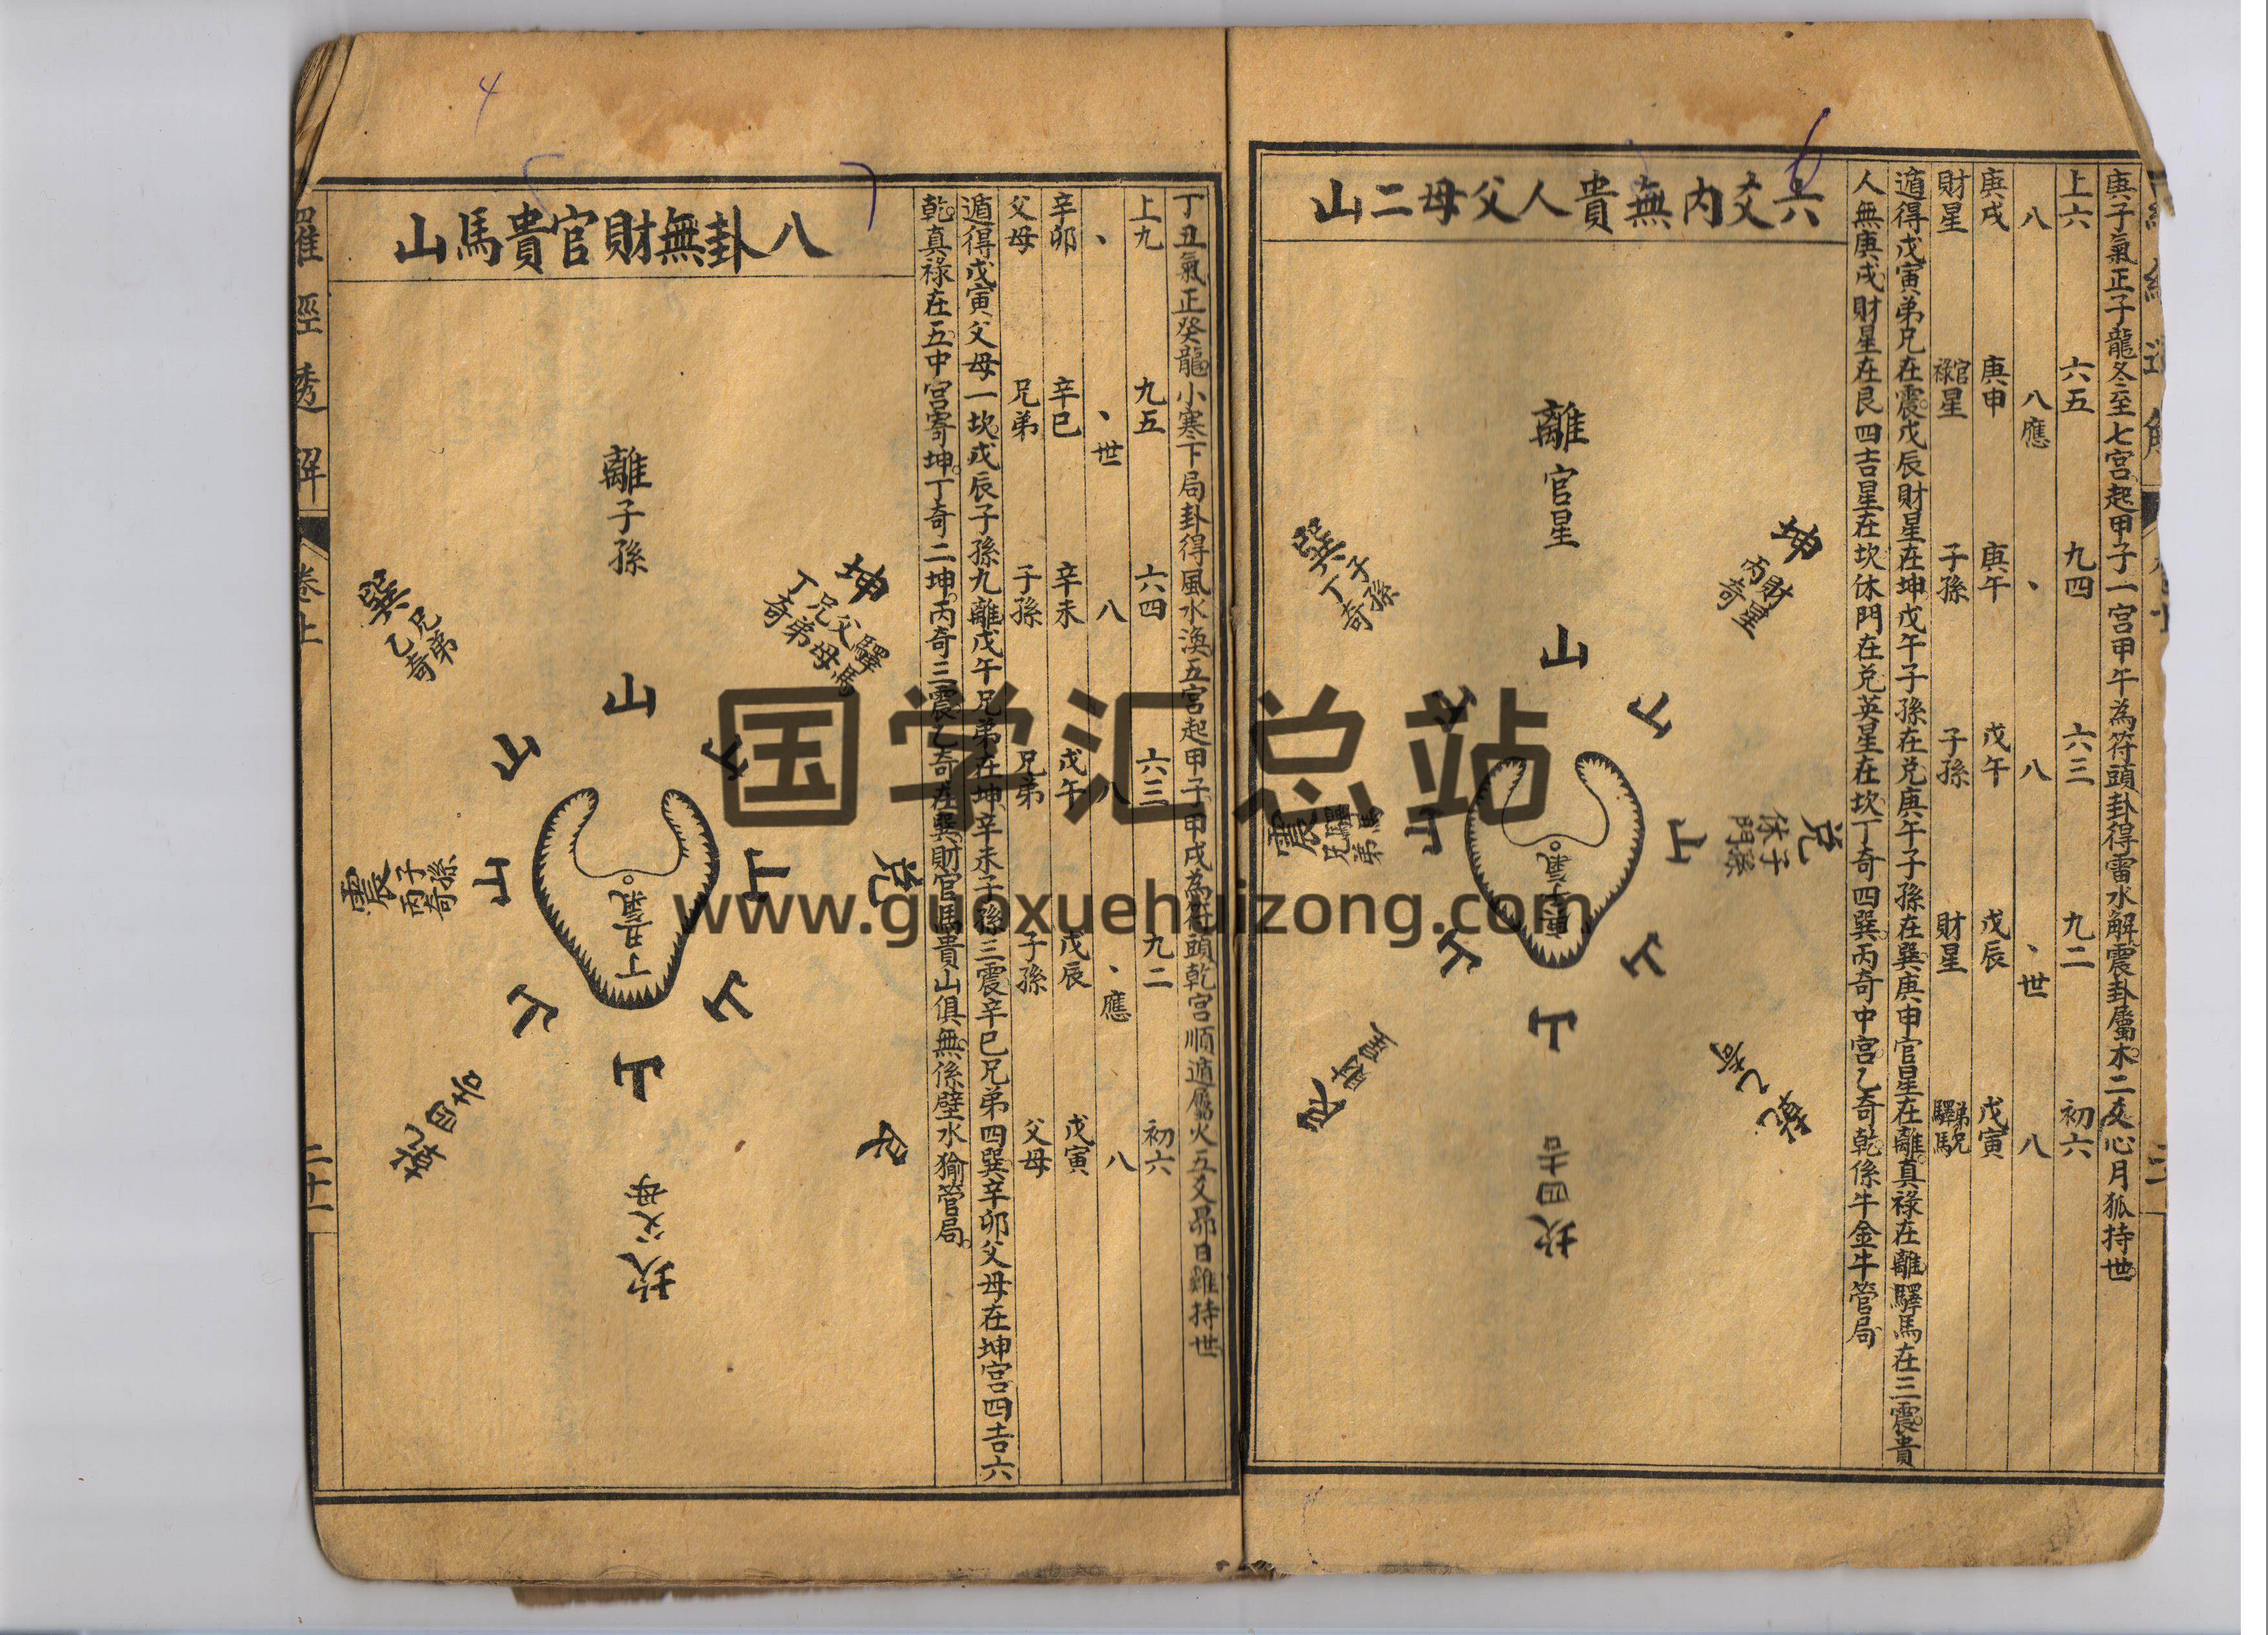 庚子氣正子龍冬至七宮起甲子一宮甲午為符頭卦得雷水解震卦屬木二爻心月狐持世
上六 六五 九四 六三 九二 初六
八 八應 、 八 、世 八
庚戌 庚申 庚午 戊午 戊辰 戊寅
財星 官祿星 子孫 子孫 財星 弟兄驛馬
遁得戊寅弟兄在震戊辰財星在坤戊午子孫在兌庚午子孫在巽庚申官星在離真祿在離驛馬在三震貴
人無庚戌財星在艮四吉星在坎休門在兌英星在坎丁奇四巽丙奇中宮乙奇乾係牛金牛管局
六爻內無貴人父母二山
離官星
坤財星丙奇
巽子孫丁奇
兌子孫休門
震驛馬兄弟
乾乙奇
坎四吉
山
山
山
庚子氣
丁丑氣正癸龍小寒下局卦得風水渙五宮起甲子甲戌為符頭乾宮順遁屬火五爻昴日雞持世
上九 九五 六四 六三 九二 初六
、 、世 八 八 、應 八
辛卯 辛巳 辛未 戊午 戊辰 戊寅
父母 兄弟 子孫 兄弟 子孫 父母
遁得戊寅父母一坎戊辰子孫九離戊午兄弟在坤辛未子孫三震辛巳兄弟四巽辛卯父母在坤宮四吉六
乾真祿在五中宮寄坤丁奇二坤丙奇三震乙奇在巽財官馬貴山俱無係壁水㺄管局
八卦無財官貴馬山
離子孫
坤驛馬父母兄弟丁奇
巽兄弟乙奇
兌
震子孫丙奇
艮
乾四吉
坎父母
山
山
山
山
丁丑氣
羅經透解
卷上
二十一
国学汇总站
www.guoxuehuizong.com
4